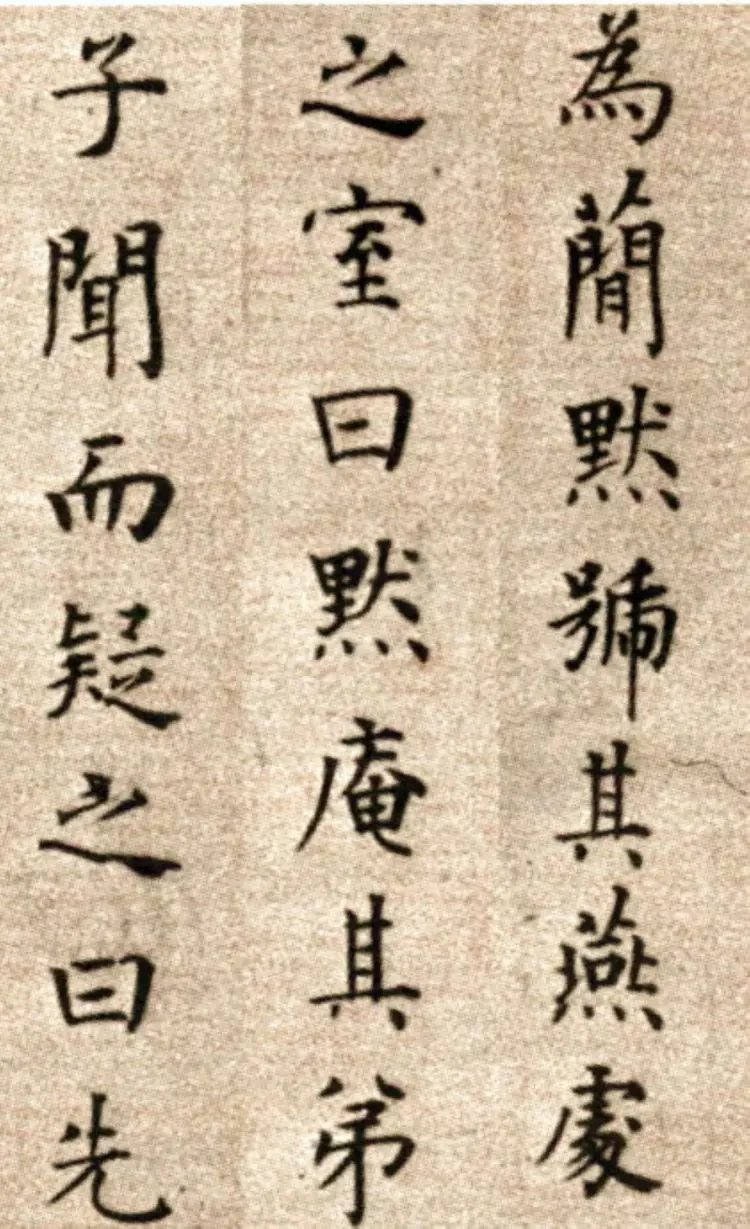 為蕳默號其燕處
之室曰默庵其弟
子聞而疑之曰先